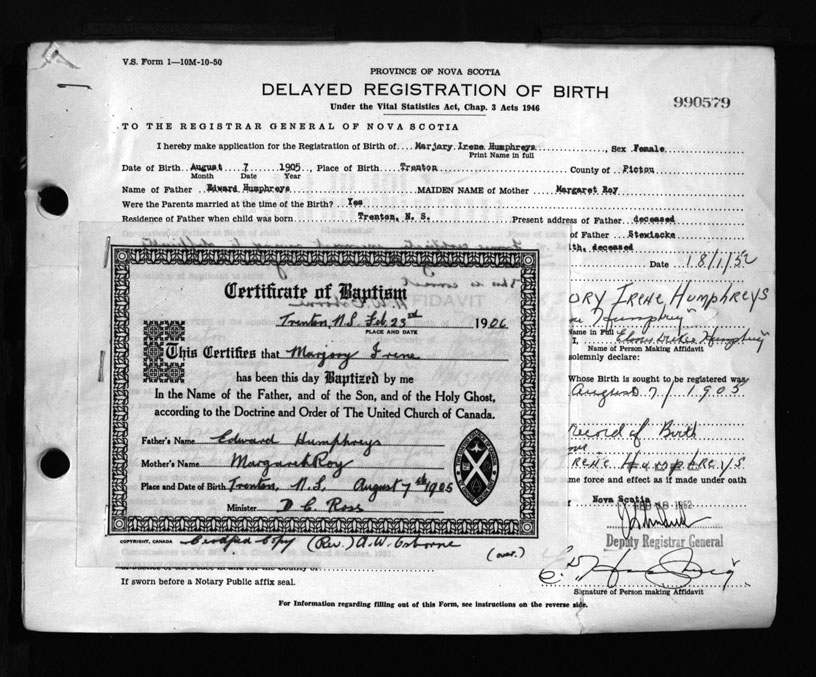 V.S. Form 1—10M-10-50
PROVINCE OF NOVA SCOTIA
DELAYED REGISTRATION OF BIRTH
Under the Vital Statistics Act, Chap. 3 Acts 1946
990579
TO THE REGISTRAR GENERAL OF NOVA SCOTIA
I hereby make application for the Registration of Birth of Marjary Irene Humphreys, Sex Female
Print Name in full
Date of Birth August 7 1905, Place of Birth Trenton County of Pictou
Month Date Year
Name of Father Edward Humphreys MAIDEN NAME of Mother Margaret Roy
Were the Parents married at the time of the Birth? Yes
Residence of Father when child was born Trenton, N. S. Present address of Father deceased
of Father Stewiacke
deceased
Date 18/1/52
Certificate of Baptism
Trenton, N.S. Feb. 23rd 1906
PLACE AND DATE
This Certifies that Marjory Irene
has been this day Baptized by me
In the Name of the Father, and of the Son, and of the Holy Ghost,
according to the Doctrine and Order of The United Church of Canada.
Father's Name Edward Humphreys
Mother's Name Margaret Roy
Place and Date of Birth Trenton, N.S. August 7th 1905
Minister D C. Ross
COPYRIGHT, CANADA Certified Copy (Rev.) A. W. Osborne
(over.)
ORY IRENE HUMPHREYS
Name in Full
I,
Name of Person Making Affidavit
solemnly declare:
Whose Birth is sought to be registered was
August 7/1905
Record of Birth
IRENE HUMPHREYS
me force and effect as if made under oath
Nova Scotia
Deputy Registrar General
Signature of Person making Affidavit
If sworn before a Notary Public affix seal.
For Information regarding filling out of this Form, see instructions on the reverse side.